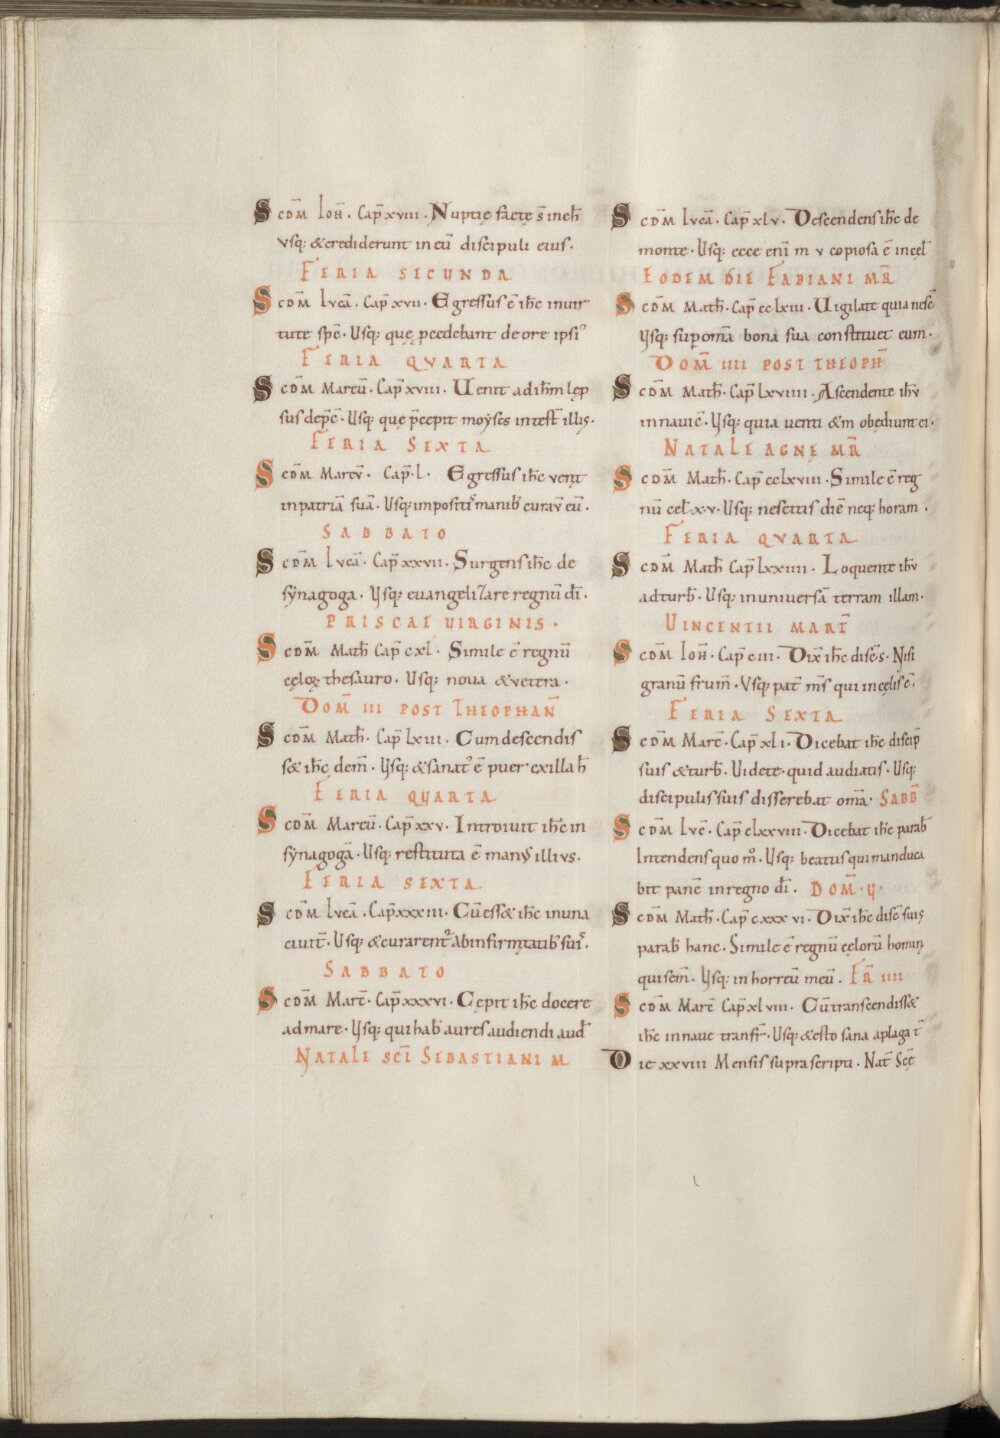 Scdm Ioh̄. Cap̄ xviii. Nuptię factę s̄ in ch̄
Vsq; & crediderunt in eū discipuli eius.
FERIA SICUNDA
Scdm Lucā. Cap̄ xvii. Egressus ē ih̄c in uir
tute sp̄c. Usq; quę p̄cedebant de ore ipsiꝰ
FERIA QVARTA
Scdm Marcū. Cap̄ xviii. Uenit ad ih̄m lep
sus dep̄c̄. Usq; que p̄cepit moẏses in test̄ illis.
FERIA SEXTA
Scdm Marcv̄. Cap̄. l. Egressus ih̄c venit
in patriā suā. Usq; impositꝭ manib; curav̄ eū.
SABBATO
Scdm Lvcā. Cap̄ xxvii. Surgens ih̄c de
sẏnagoga. Vsq; euangelizare regnū dī.
PRISCAE UIRGINIS.
Scdm Math̄ Cap̄ cxl. Simile ē regnū
cęloꝝ thesauro. Usq; noua & vetera.
DOM̄ III POST THEOPHAN̄
Scdm Math̄. Cap̄ lxiii. Cum descendis
s& ih̄c de m̄. Vsq; & sanatꝰ ē puer ex illa h̄
FERIA QVARTA
Scdm Marcū. Cap̄ xxv. Introiuit ih̄c in
sẏnagogā. Usq; restituta ē manꝰ illivs.
FERIA SEXTA
Scdm Lvcā. Cap̄ xxxiii. Cū ess& ih̄c in una
ciuit̄. Usq; & curarent᷑ ab infirmitatib; suiꝭ.
SABBATO
Scdm Marc̄. Cap̄ xxxvi. Cępit ih̄c docere
ad mare. Vsq; qui hab̄ aures audiendi aud̄
NATALE SC̄I SEBASTIANI M
Scdm Lvcā. Cap̄ xlv. Descendens ih̄c de
monte. Usq; ecce enī m v copiosa ē in cęl̄
EODEM DIE FABIANI MR̄
Scdm Math̄. Cap̄ cclxiii. Uigilate quia nesc̄
Vsq; sup omā bona sua constituet eum.
DOM̄ IIII POST THEOPH̄
Scdm Math̄. Cap̄ lxviiii. Ascendente ih̄v
in nauic̄. Vsq; quia uenti & m obediunt ei.
NATALE AGNĘ MR̄
Scdm Math̄. Cap̄ cclxviii. Simile ē reg
nū cel̄. x. v. Usq; nescitis diē neq; horam.
FERIA QVARTA
Scdm Math̄ Cap̄ lxxiiii. Loquente ih̄v
ad turb̄. Usq; in uniuersā terram illam.
UINCENTII MART̄
Scdm Ioh̄. Cap̄ ciii. Dix̄ ih̄c disc̄s. Nisi
granū frum̄. Vsq; pat̄ m̄s qui in cęlis ē.
FERIA SEXTA
Scdm Marc̄. Cap̄ xli. Dicebat ih̄c discip̄
suis & turb̄. Uidete quid audiatis. Usq;
discipulis suis disserebat omā. SABB̄
Scdm Lvc̄. Cap̄ clxxviii. Dicebat ih̄c parab̄
Intendens quo m̊. Usq; beatus qui manduca
bit panē in regno dī. DOM̄. V.
Scdm Math̄. Cap̄ cxxxvi. Dix̄ ih̄c disc̄ suis
parab̄ hanc. Simile ē regnū cęlorū homin̄
qui sem̄. Vsq; in horreū meū. FR̄ IIII
Scdm Marc̄ Cap̄ xlviii. Cū transcendiss&
ih̄c in naue transfr̄. Usq; & esto sana a plaga t̄
Die xxviii Mensis supra scripti. Nat̄ Sc̄ę